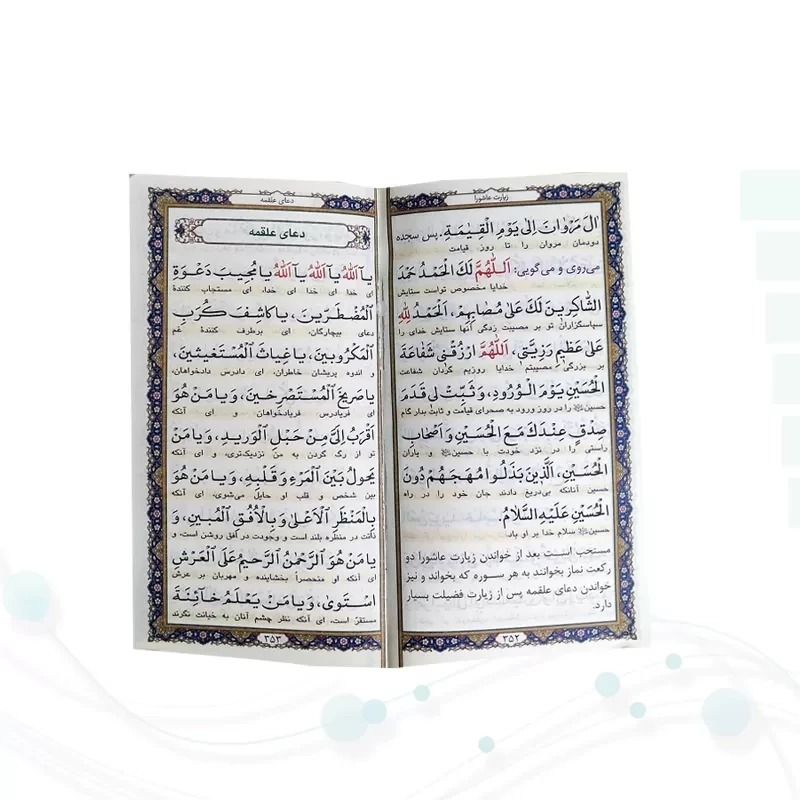 زیارت عاشورا
اٰلَ مَرْوانَ اِلیٰ یَوْمِ الْقِیٰمَةِ. پس سجده
دودمان مروان را تا روز قیامت
می‌روی و می‌گویی: اَللّٰهُمَّ لَكَ الْحَمْدُ حَمْدَ
خدایا مخصوص تواست ستایش
الشّٰاكِرینَ لَكَ عَلیٰ مُصٰابِهِمْ، اَلْحَمْدُ لِلّٰهِ
سپاسگزاران تو بر مصیبت زدگی آنها ستایش خدای را
عَلیٰ عَظیمِ رَزِیَّتی، اَللّٰهُمَّ ارْزُقْنی شَفٰاعَةَ
بر بزرگی مصیبتم خدایا روزیم گردان شفاعت
الْحُسَیْنِ یَوْمَ الْوُرُودِ، وَ ثَبِّتْ لی قَدَمَ
حسین را در روز ورود به صحرای قیامت و ثابت بدار گام
صِدْقٍ عِنْدَكَ مَعَ الْحُسَیْنِ وَ اَصْحٰابِ
راستی را در نزد خودت با حسین و یاران
الْحُسَیْنِ، اَلَّذینَ بَذَلُوا مُهَجَهُمْ دُونَ
حسین آنانکه بی‌دریغ دادند جان خود را در راه
الْحُسَیْنِ عَلَیْهِ السَّلٰامُ.
حسین سلام خدا بر او باد.
مستحب است بعد از خواندن زیارت عاشورا دو
رکعت نماز بخوانند به هر سوره که بخواند و نیز
خواندن دعای علقمه پس از زیارت فضیلت بسیار
دارد.
۳۵۲
دعای علقمه
دعای علقمه
یٰا اَللّٰهُ یٰا اَللّٰهُ یٰا اَللّٰهُ یٰا مُجیبَ دَعْوَةِ
ای خدا ای خدا ای خدا، ای مستجاب کنندهٔ
الْمُضْطَرّینَ، یٰا كٰاشِفَ كُرَبِ
دعای بیچارگان، ای برطرف کنندهٔ غم
الْمَكْرُوبینَ، یٰا غِیٰاثَ الْمُسْتَغیثینَ،
و اندوه پریشان خاطران، ای دادرس دادخواهان،
یٰا صَریخَ الْمُسْتَصْرِخینَ، وَ یٰا مَنْ هُوَ
ای فریادرس فریادخواهان و ای آنکه
اَقْرَبُ اِلَیَّ مِنْ حَبْلِ الْوَریدِ، وَ یٰا مَنْ
تو از رگ گردن به من نزدیک‌تری، و ای آنکه
یَحُولُ بَیْنَ الْمَرْءِ وَ قَلْبِهِ، وَ یٰا مَنْ هُوَ
بین شخص و قلب او حایل می‌شوی، ای آنکه
بِالْمَنْظَرِ الْاَعْلیٰ وَ بِالْاُفُقِ الْمُبینِ، وَ
ذاتت در منظره بلند است و وجودت در افق روشن است، و
یٰا مَنْ هُوَ الرَّحْمٰنُ الرَّحیمُ عَلَی الْعَرْشِ
ای آنکه او منحصراً بخشاینده و مهربان بر عرش
اسْتَویٰ، وَ یٰا مَنْ یَعْلَمُ خٰائِنَةَ
مستقرّ است، ای آنکه نظر چشم آنان به خیانت نگرند
۳۵۳